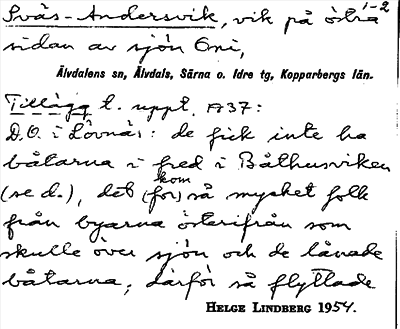 Svås-Andersvik, vik på östra 1-2
sidan av sjön Öni,
Älvdalens sn, Älvdals, Särna o. Idre tg, Kopparbergs län.
Tillägg t. uppt. 1737:
D.O. i Lövnäs: de fick inte ha
båtarna i fred i Båthusviken
(se d.), det kom (for) så mycket folk
från byarna österifrån som
skulle över sjön och de lånade
båtarna, därför så flyttade
HELGE LINDBERG 1954.